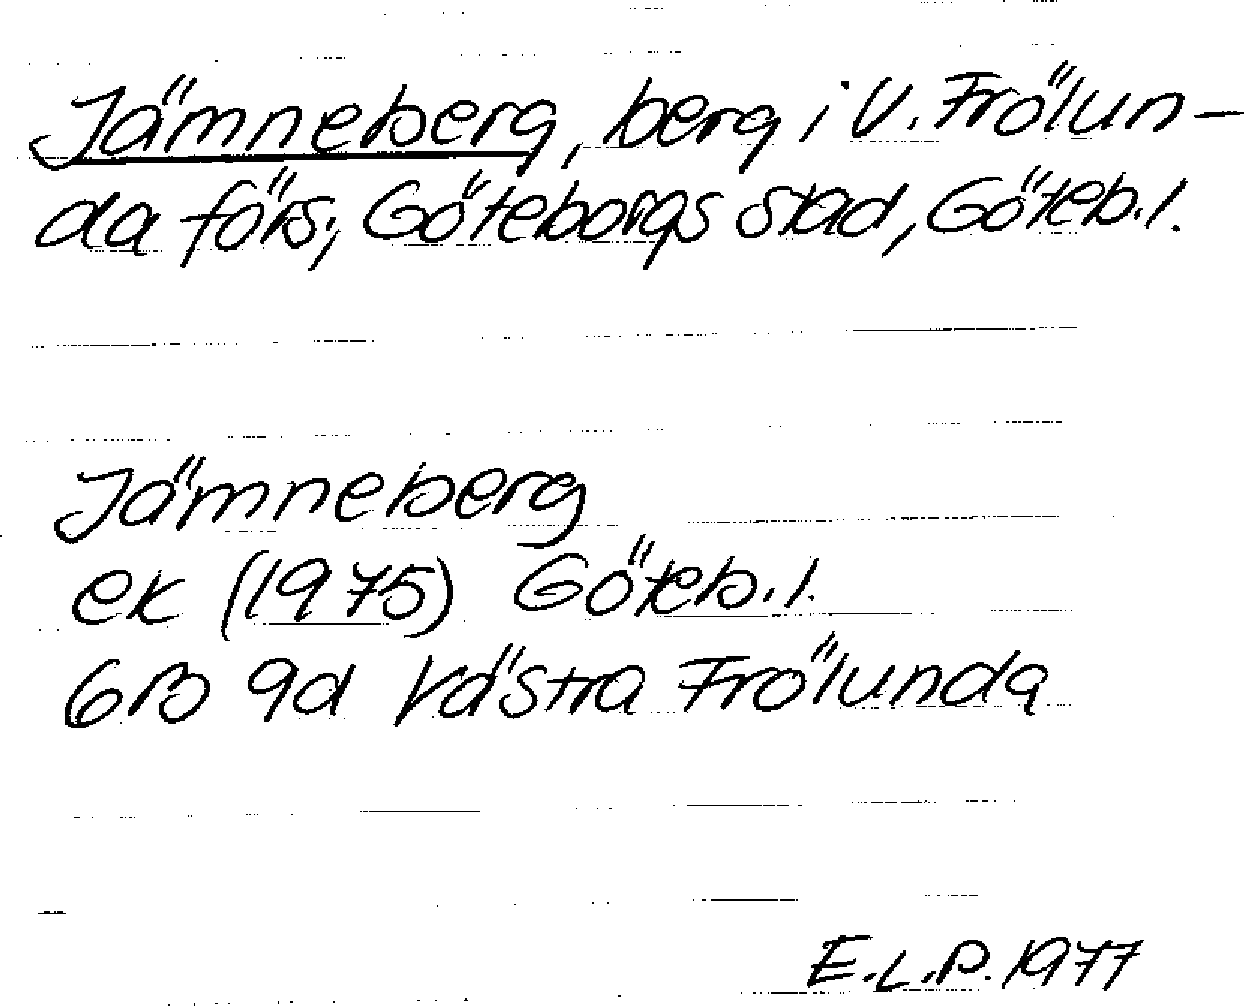 Jämneberg, berg i V. Frölun-
da förs., Göteborgs stad, Göteb. l.
Jämneberg
ek (1975) Göteb. l.
6B 9d Västra Frölunda
E.L.P. 1977